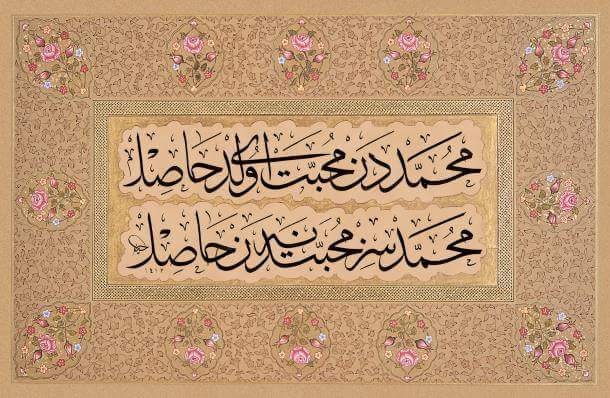 مُحَمَّددَن مُحبَّت اولدی حَاصِل
مُحَمَّدسِز مُحبَّتدَن نه حَاصِل